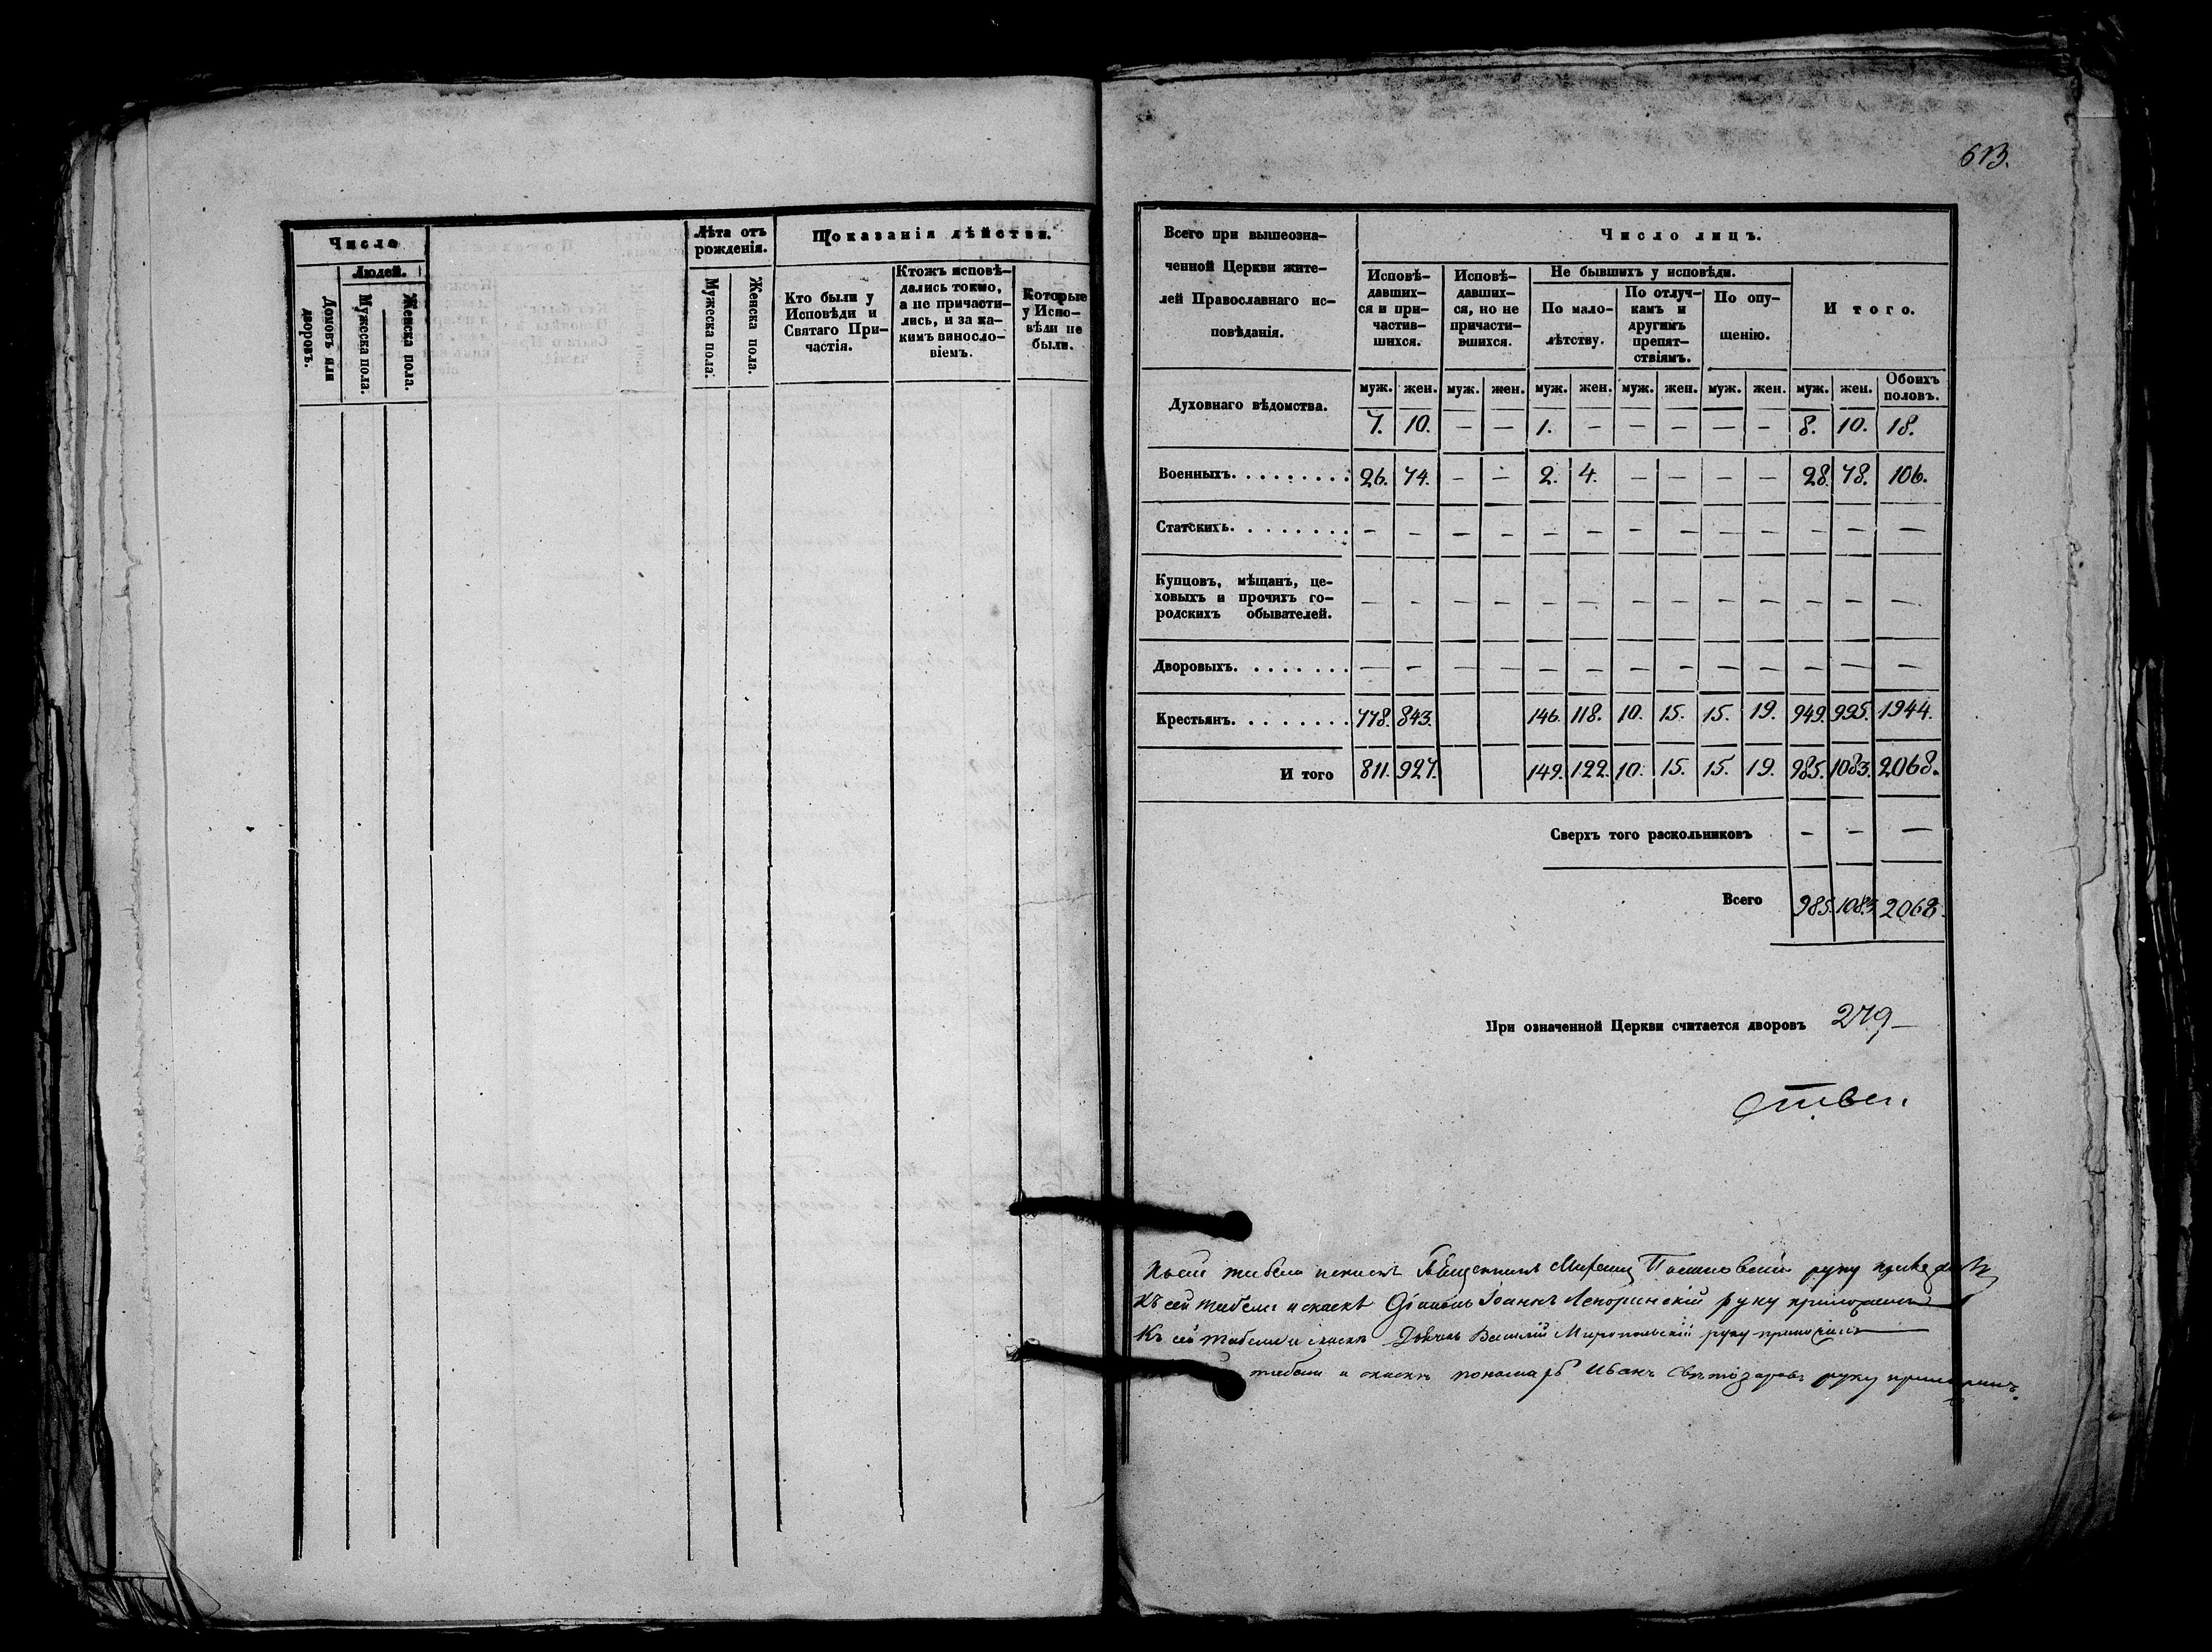 613.
Число
Людей.
Домовъ или дворовъ.
Мужеска пола.
Женска пола.
Лѣта отъ
рожденія.
Мужеска пола.
Женска пола.
Показанія дѣйства.
Кто были у
Исповѣди и
Святаго При-
частія.
Ктожъ исповѣ-
дались токмо,
а не причасти-
лись, и за ка-
кимъ винносло-
віемъ.
Которые
у Испо-
вѣди не
были.
Всего при вышеозна-
ченной Церкви жите-
лей Православнаго ис-
повѣданія.
Число лицъ.
Исповѣ-
давших-
ся и при-
частив-
шихся.
Исповѣ-
давших-
ся, но не
причасти-
вшихся.
Не бывшихъ у исповѣди.
По мало-
лѣтству.
По отлуч-
камъ и
другимъ
препят-
ствіямъ.
По опу-
щенію.
И того.
муж. жен. муж. жен. муж. жен. муж. жен. муж. жен. муж. жен. Обоихъ половъ.
Духовнаго вѣдомства. 7. 10. — — 1. — — — — — 8. 10. 18.
Военныхъ. . . . . . . . . 26. 74. — — 2. 4. — — — — 28. 78. 106.
Статскихъ. . . . . . . . — — — — — — — — — — — — —
Купцовъ, мѣщанъ, це-
ховыхъ и прочихъ го-
родскихъ обывателей. — — — — — — — — — — — — —
Дворовыхъ. . . . . . . . — — — — — — — — — — — — —
Крестьянъ. . . . . . . . 778. 843. 146. 118. 10. 15. 15. 19. 949. 995. 1944.
И того 811. 927. 149. 122. 10. 15. 15. 19. 985. 1083. 2068.
Сверхъ того раскольниковъ — — —
Всего 985. 1083. 2068.
При означенной Церкви считается дворовъ 279—
руку
Къ сей табели и скаскѣ Діаконъ Іоаннъ Лепоринскій руку приложилъ
Къ сей табели и скаскѣ Дьячокъ Василій Миропольскій руку приложилъ
табели и скаскѣ пономарь Иванъ Свѣтозаровъ руку приложилъ.